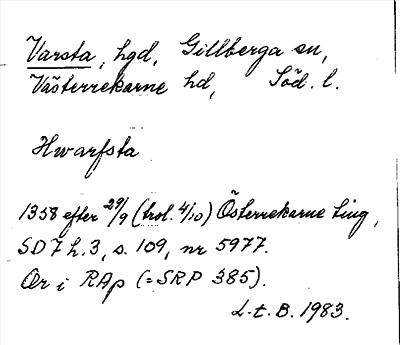 Varsta, hgd, Gillberga sn,
Västerrekarne hd, Söd. l.
Hwarfsta
1358 efter 29/9 (trol. 4/10) Österrekarne ting,
SD 7 h. 3, s. 109, nr 5977.
Or i RAp (= SRP 385).
L. t. B. 1983.